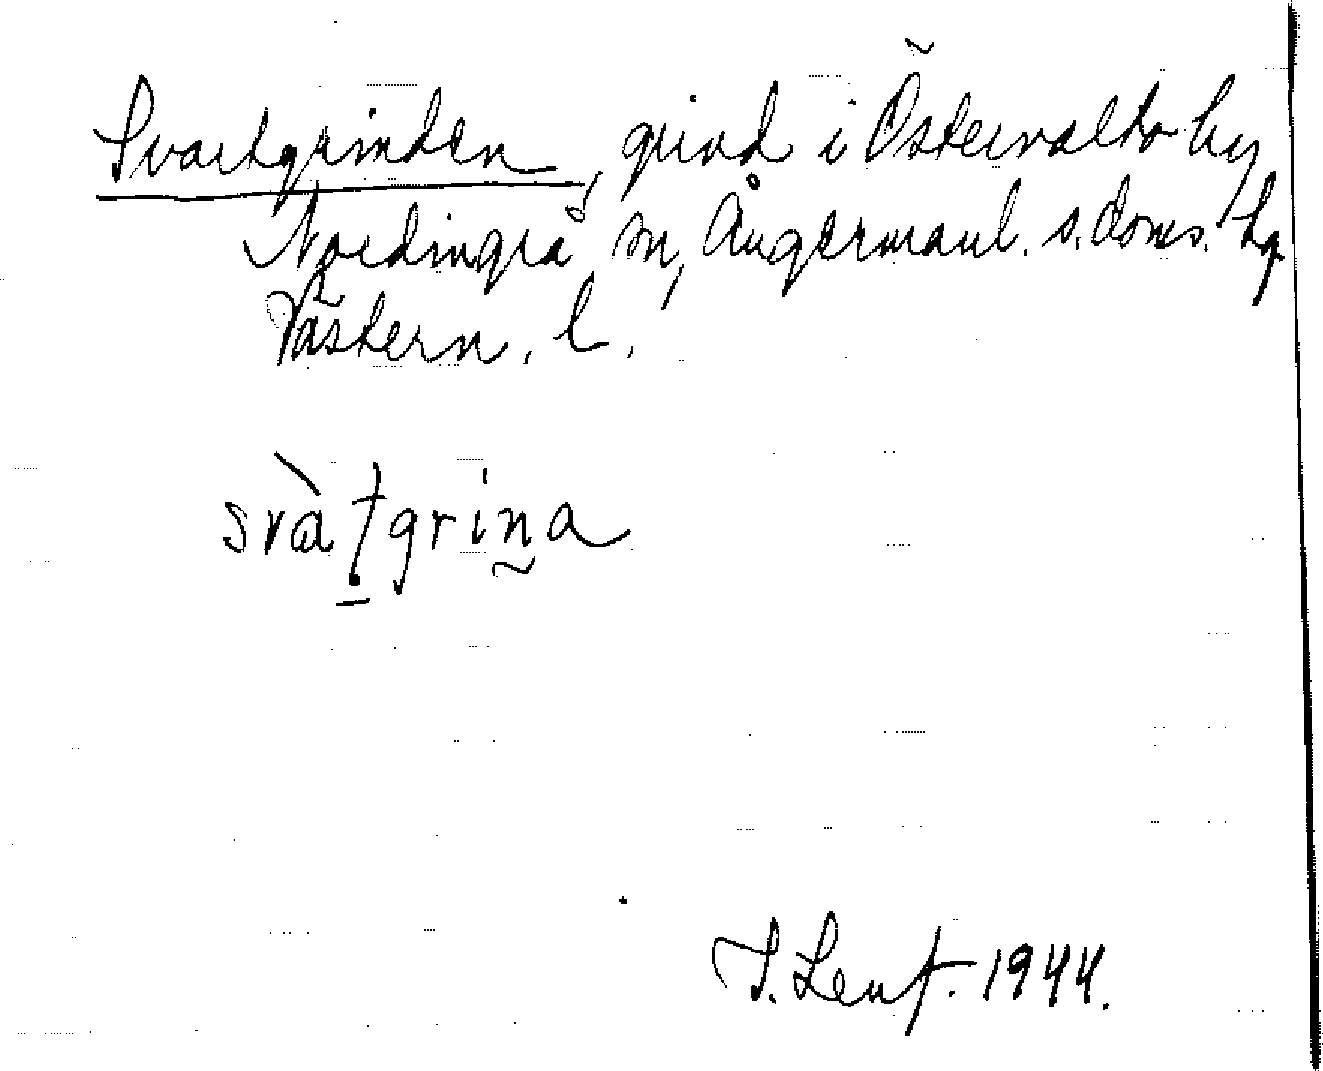 Svartgrinden, grind i Östervalto by
Nordingrå sn, Ångermanl. s. doms. hg
Västern. l.
svàtgrina
1944.